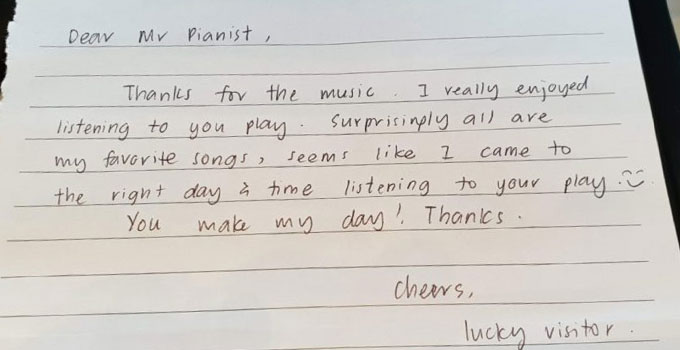 Dear Mr Pianist,
Thanks for the music. I really enjoyed
listening to you play. Surprisingly all are
my favorite songs, seems like I came to
the right day & time listening to your play.
You make my day! Thanks.
Cheers,
lucky visitor.